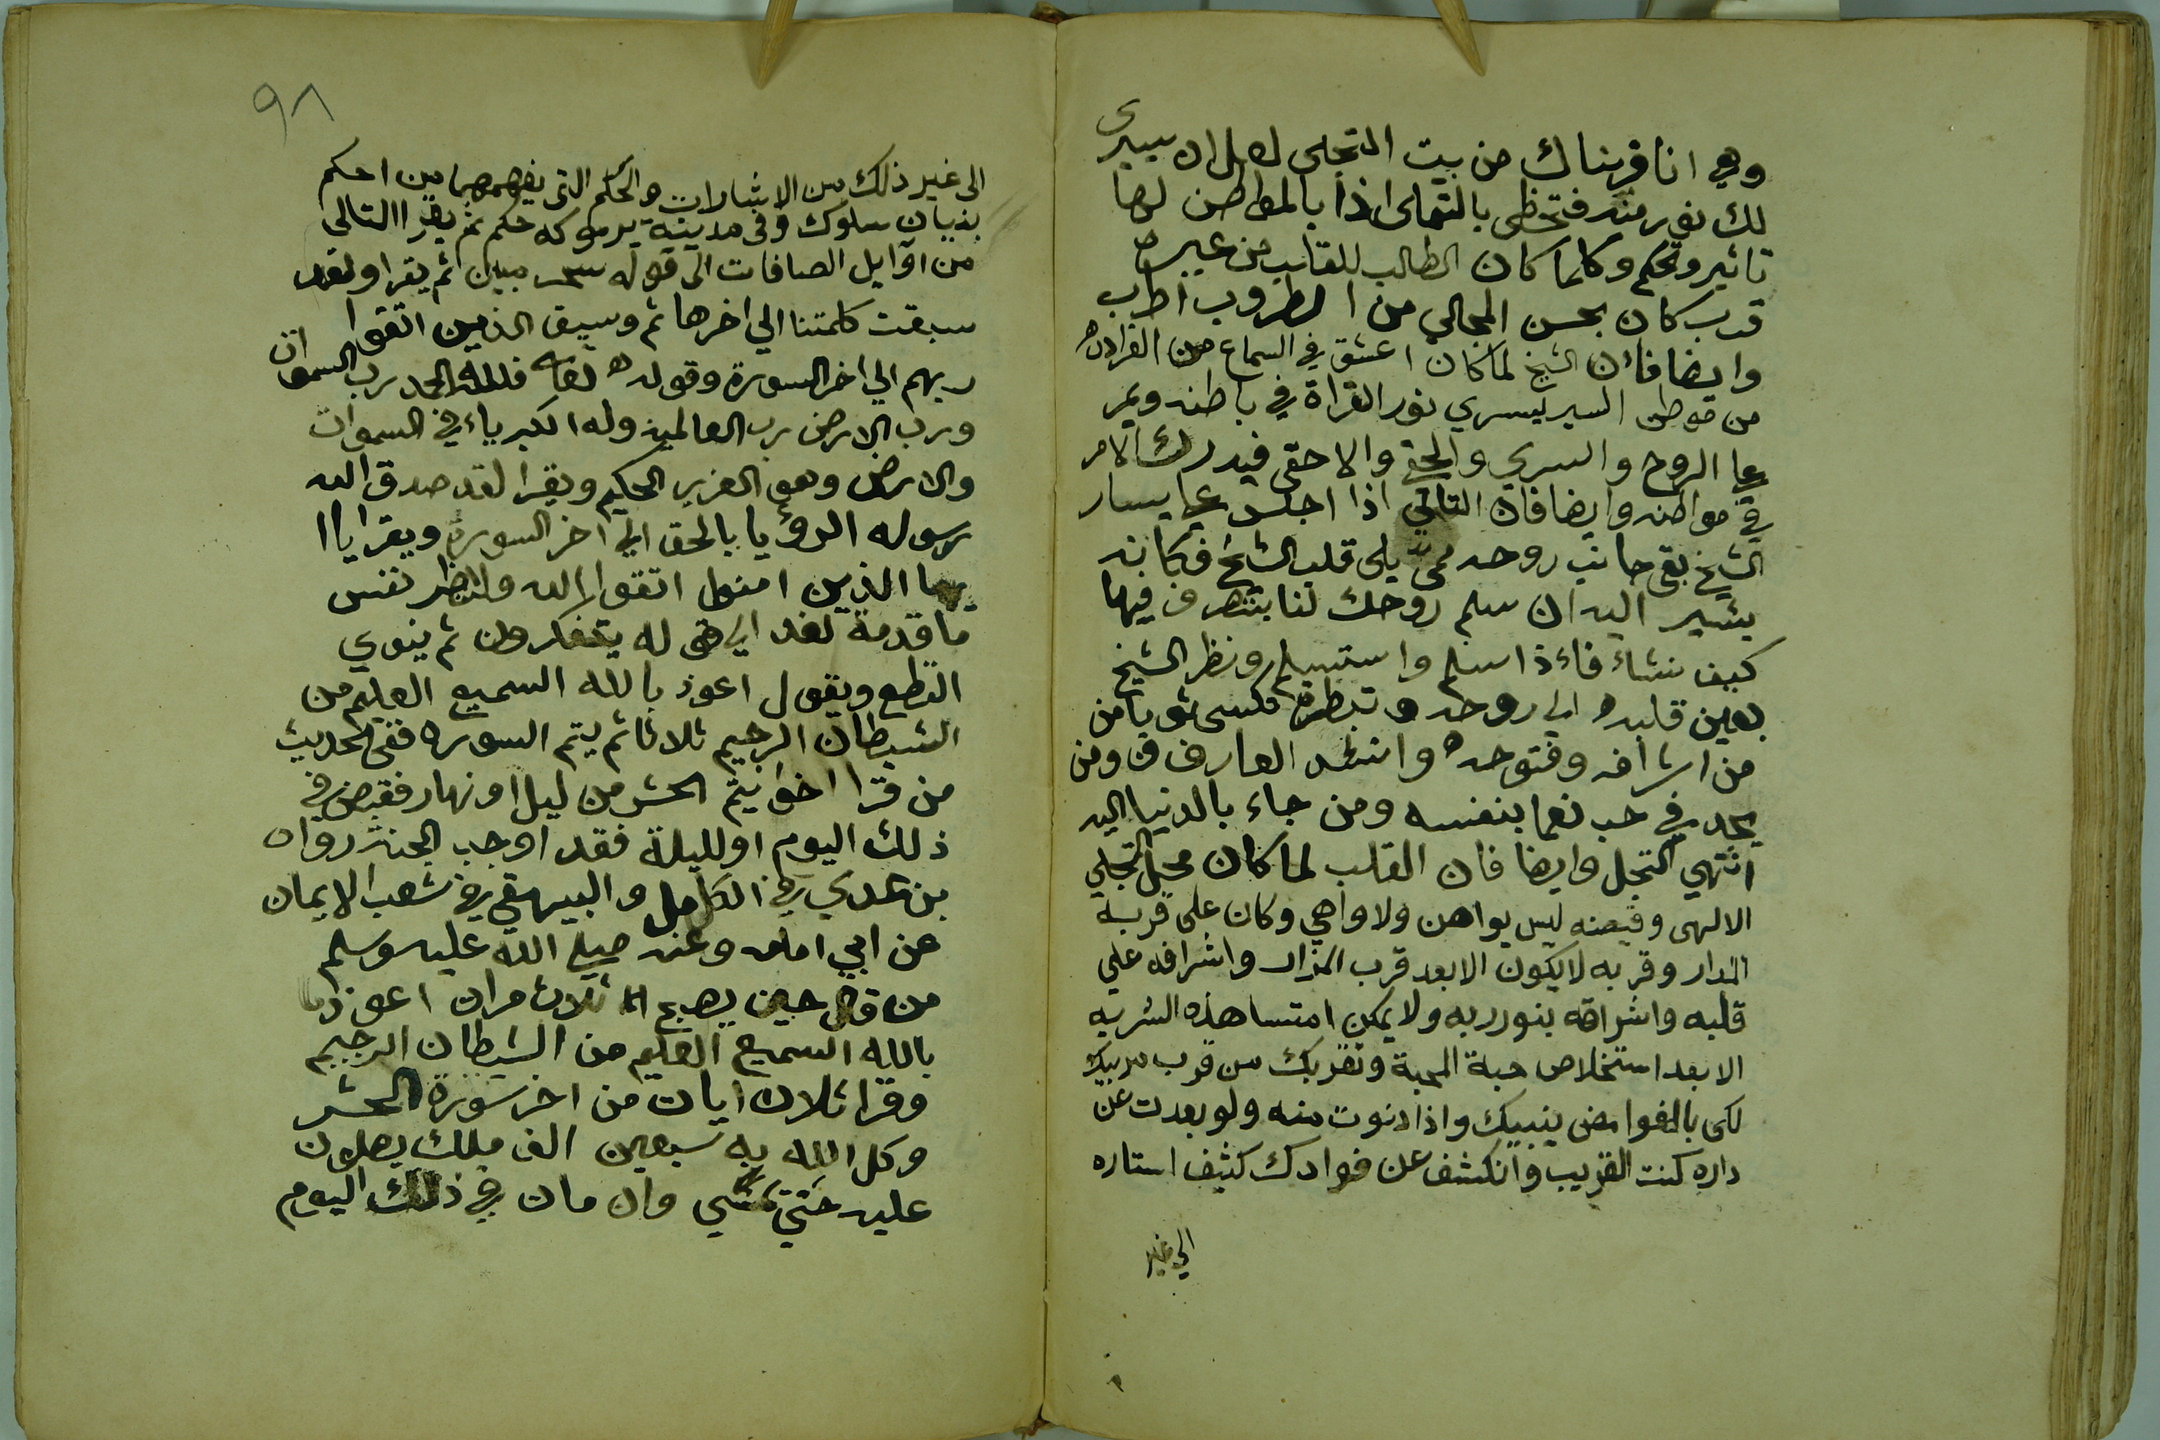 وهي انا قربناك من بيت التجلي لعل ان يسرى
لك نور منه فتحظى بالتملى اذا بالمواطن لها
تاثير وتحكم وكلما كان الطالب للقلب من غير
قرب كان بحسن المجالي من الطروب اطرب
وايضا فان الشيخ لما كان اعشق في السماع من القراءة
من موطن السير ليسري نور القراة في باطنه ويمر
علي الروح والسري والخفي والاخفى فيدرك الامر
في مواطنه وايضا فان التالي اذا اجلس علي يسار
الشيخ بقى جانب روحه مما يلي قلب الشيخ فكانه
يشير اليه ان سلم روحك لنا بتصرف فيها
كيف نشاء فاءذا اسلم واستسلم ونظر الشيخ
بعين قلبه الي روحه وتبطره تكسى ثوبا من
من اشرافه وفتوحه وانشد العارف ومن
يجد في حب نعما بنفسه ومن جاء بالدنيا اليه
انتهي التجل وايضا فان القلب لما كان محل التجلي
الالهي وقبضه ليس بواهن ولا واهي وكان على قربه
المدار وقربه لا يكون الا بعد قرب المزار واشرافه علي
قلبه واشراقه بنور ربه ولا يمكن امتسا هذه الشربه
الا بعد استخلاص حبة المحبة وتقربك من قرب مربيك
لكي بالغوامض ينبيك واذا دنوت منه ولو بعدت عن
داره كنت القريب وانكشف عن فوادك كثيف استاره
الي غير
٩٨
الى غير ذلك من الاشارات والحكم التي يفهمها من احكم
بنيان سلوك وفي مدينة يرموكه حكم ثم يقرا التالي
من اوايل الصافات الى قوله سحر مبين ثم يقرا ولقد
سبقت كلمتنا الي اخرها ثم وسيق الذين اتقوا
ربهم الي اخر السورة وقوله تعالى فلله الحمد رب السموات
ورب الارض رب العالمين وله الكبرياء في السموات
والارض وهو العزيز الحكيم ويقرا لقد صدق الله
رسوله الرؤيا بالحق الي اخر السورة ويقرا ياا
يها الذين امنوا اتقوا الله ولتنظر نفس
ما قدمة لغد الي قوله يتفكرون ثم ينوي
القطع ويقول اعوذ بالله السميع العليم من
الشيطان الرجيم ثلاثا ثم يتم السوره ففي الحديث
من قرا اخواتيم الحشر من ليل او نهار فقبض في
ذلك اليوم او لليلة فقد اوجب الجنة رواه
بن عدي في الكامل والبيهقي في شعب الايمان
عن ابي امامه وعنه صلي الله عليه وسلم
من قال حين يصبح ثلاث مرات اعوذ
بالله السميع العليم من الشيطان الرجيم
وقرا ثلاث ايات من اخر سورة الحشر
وكل الله به سبعين الف ملك يصلون
عليه حتي يمسي وان مات في ذلك اليوم